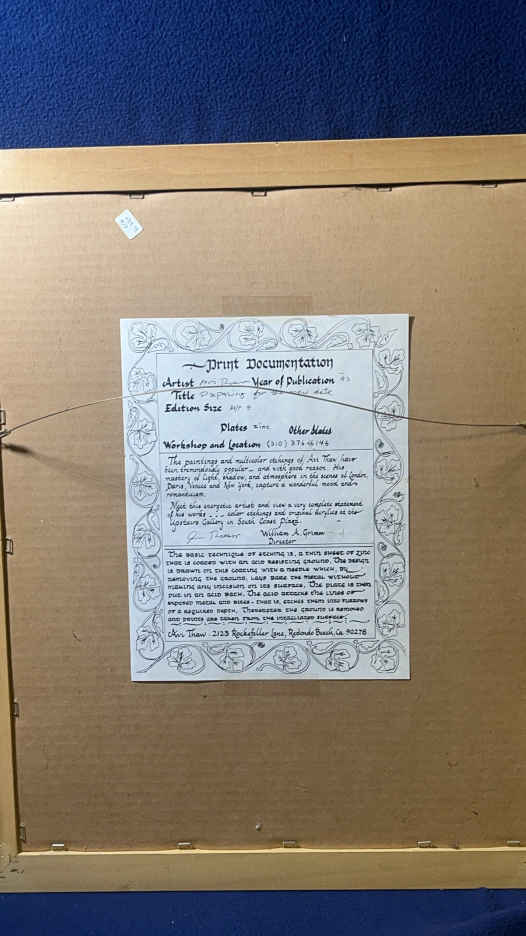 Print Documentation
Artist Avi Thaw Year of Publication 92
Title Preparing for the new date
Edition Size A/P 9
Plates zinc Other States
Workshop and Location (310) 376-6143
The paintings and multicolor etchings of Avi Thaw have
been tremendously popular... and with good reason. His
mastery of light, shadow, and atmosphere in the scenes of London,
Paris, Venice and New York, capture a wonderful mood and
romanticism.
Meet this energetic artist and view a very complete statement
of his works . . . color etchings and original acrylics at the
Upstairs Gallery in South Coast Plaza.
William A. Grimm
Director
The basic technique of etching is, a thin sheet of zinc
that is coated with an acid resisting ground. The design
is drawn on this coating with a needle which, by
removing the ground, lays bare the metal without
making any incision on its surface. The plate is then
put in an acid bath. The acid attacks the lines of
exposed metal and bites - that is, etches them into furrows
of a required depth. Thereafter the ground is removed
and prints are taken from the intagliated surface.
Avi Thaw 2123 Rockefeller Lane, Redondo Beach, Ca 90278